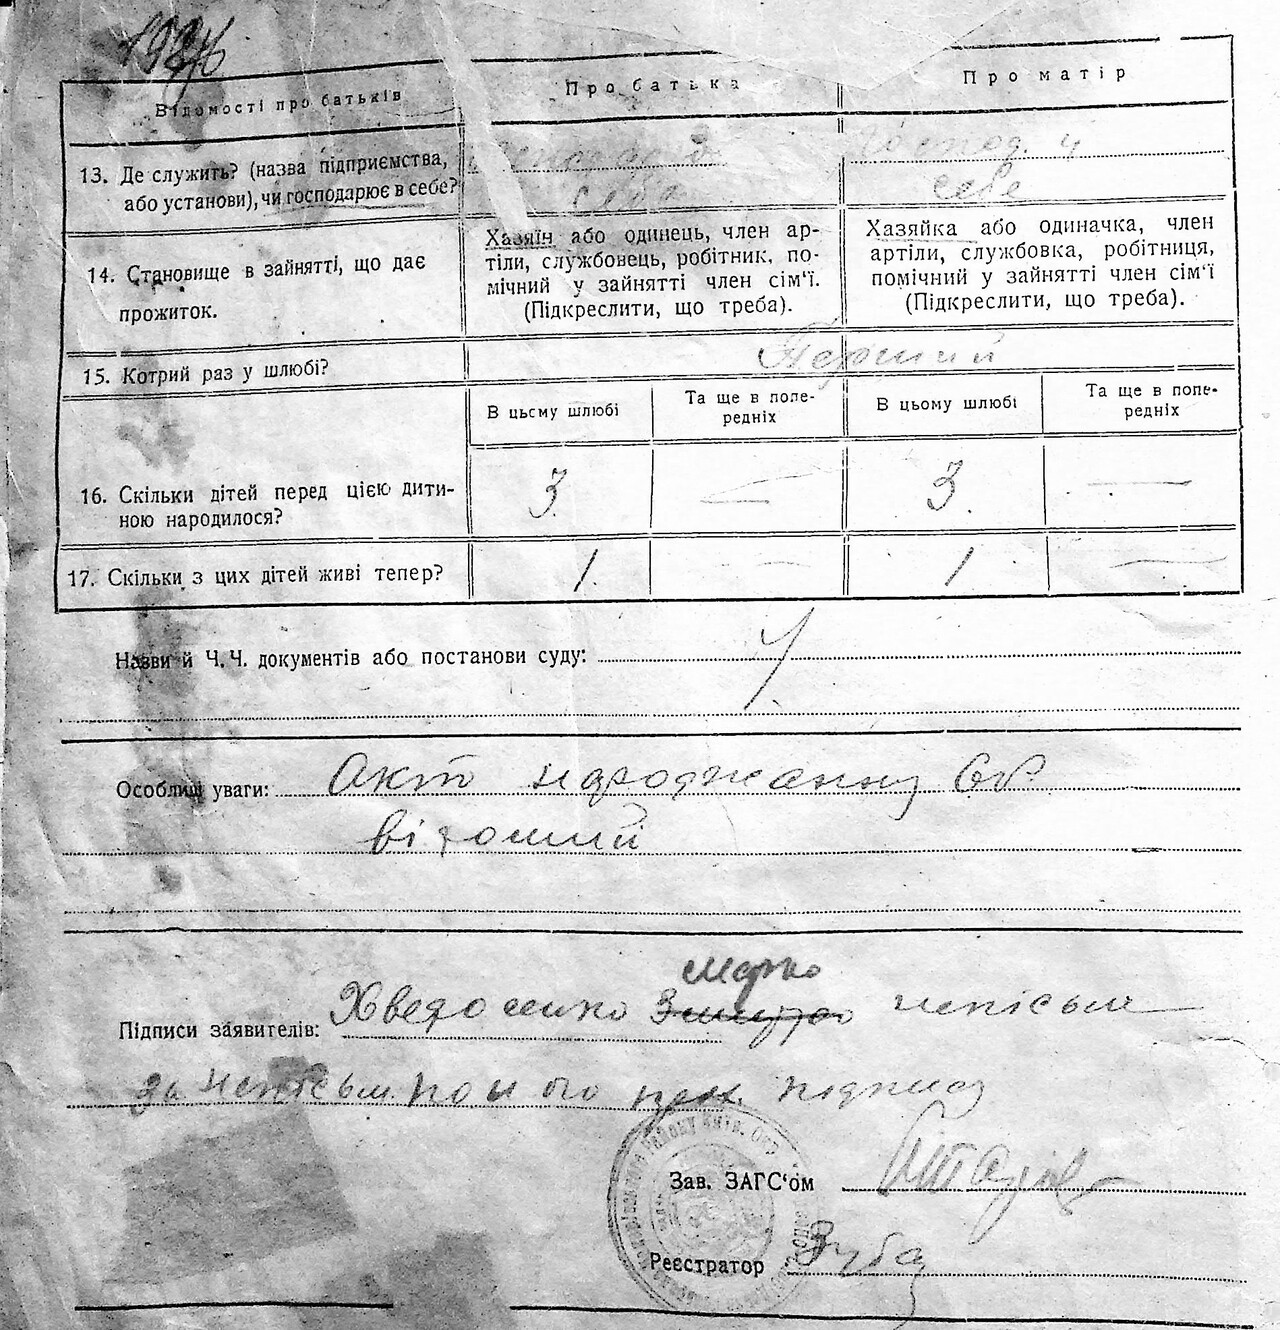 Відомості про батьків
Про батька
Про матір
13. Де служить? (назва підприємства,
або установи), чи господарює в себе?
себе
Господ. у
себе
14. Становище в зайнятті, що дає
прожиток.
Хазяїн або одинець, член ар-
тіли, службовець, робітник, по-
мічний у зайнятті член сім'ї.
(Підкреслити, що треба).
Хазяйка або одиначка, член
артіли, службовка, робітниця,
помічний у зайнятті член сім'ї
(Підкреслити, що треба).
15. Котрий раз у шлюбі?
Перший
В цьому шлюбі
Та ще в попе-
редніх
В цьому шлюбі
Та ще в попе-
редніх
16. Скільки дітей перед цією дити-
ною народилося?
3
—
3
—
17. Скільки з цих дітей живі тепер?
1
—
1
—
Назви й Ч.Ч. документів або постанови суду:
Особливі уваги: Акт народжання
Марко
Підписи заявителів: Хведосенко неписьм
за неписьм. по його прох. підписа
Зав. ЗАГС'ом
Реєстратор Зуба